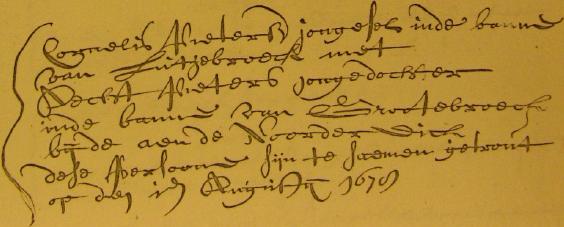 Cornelis Pieters jongesel inde banne
van Lutjebroeck met
Pieters jongedochter
inde banne van Grootebroeck
bijde aen de Noorder Dick
dese Persoone sijn te saemen getrout
op den Augusty